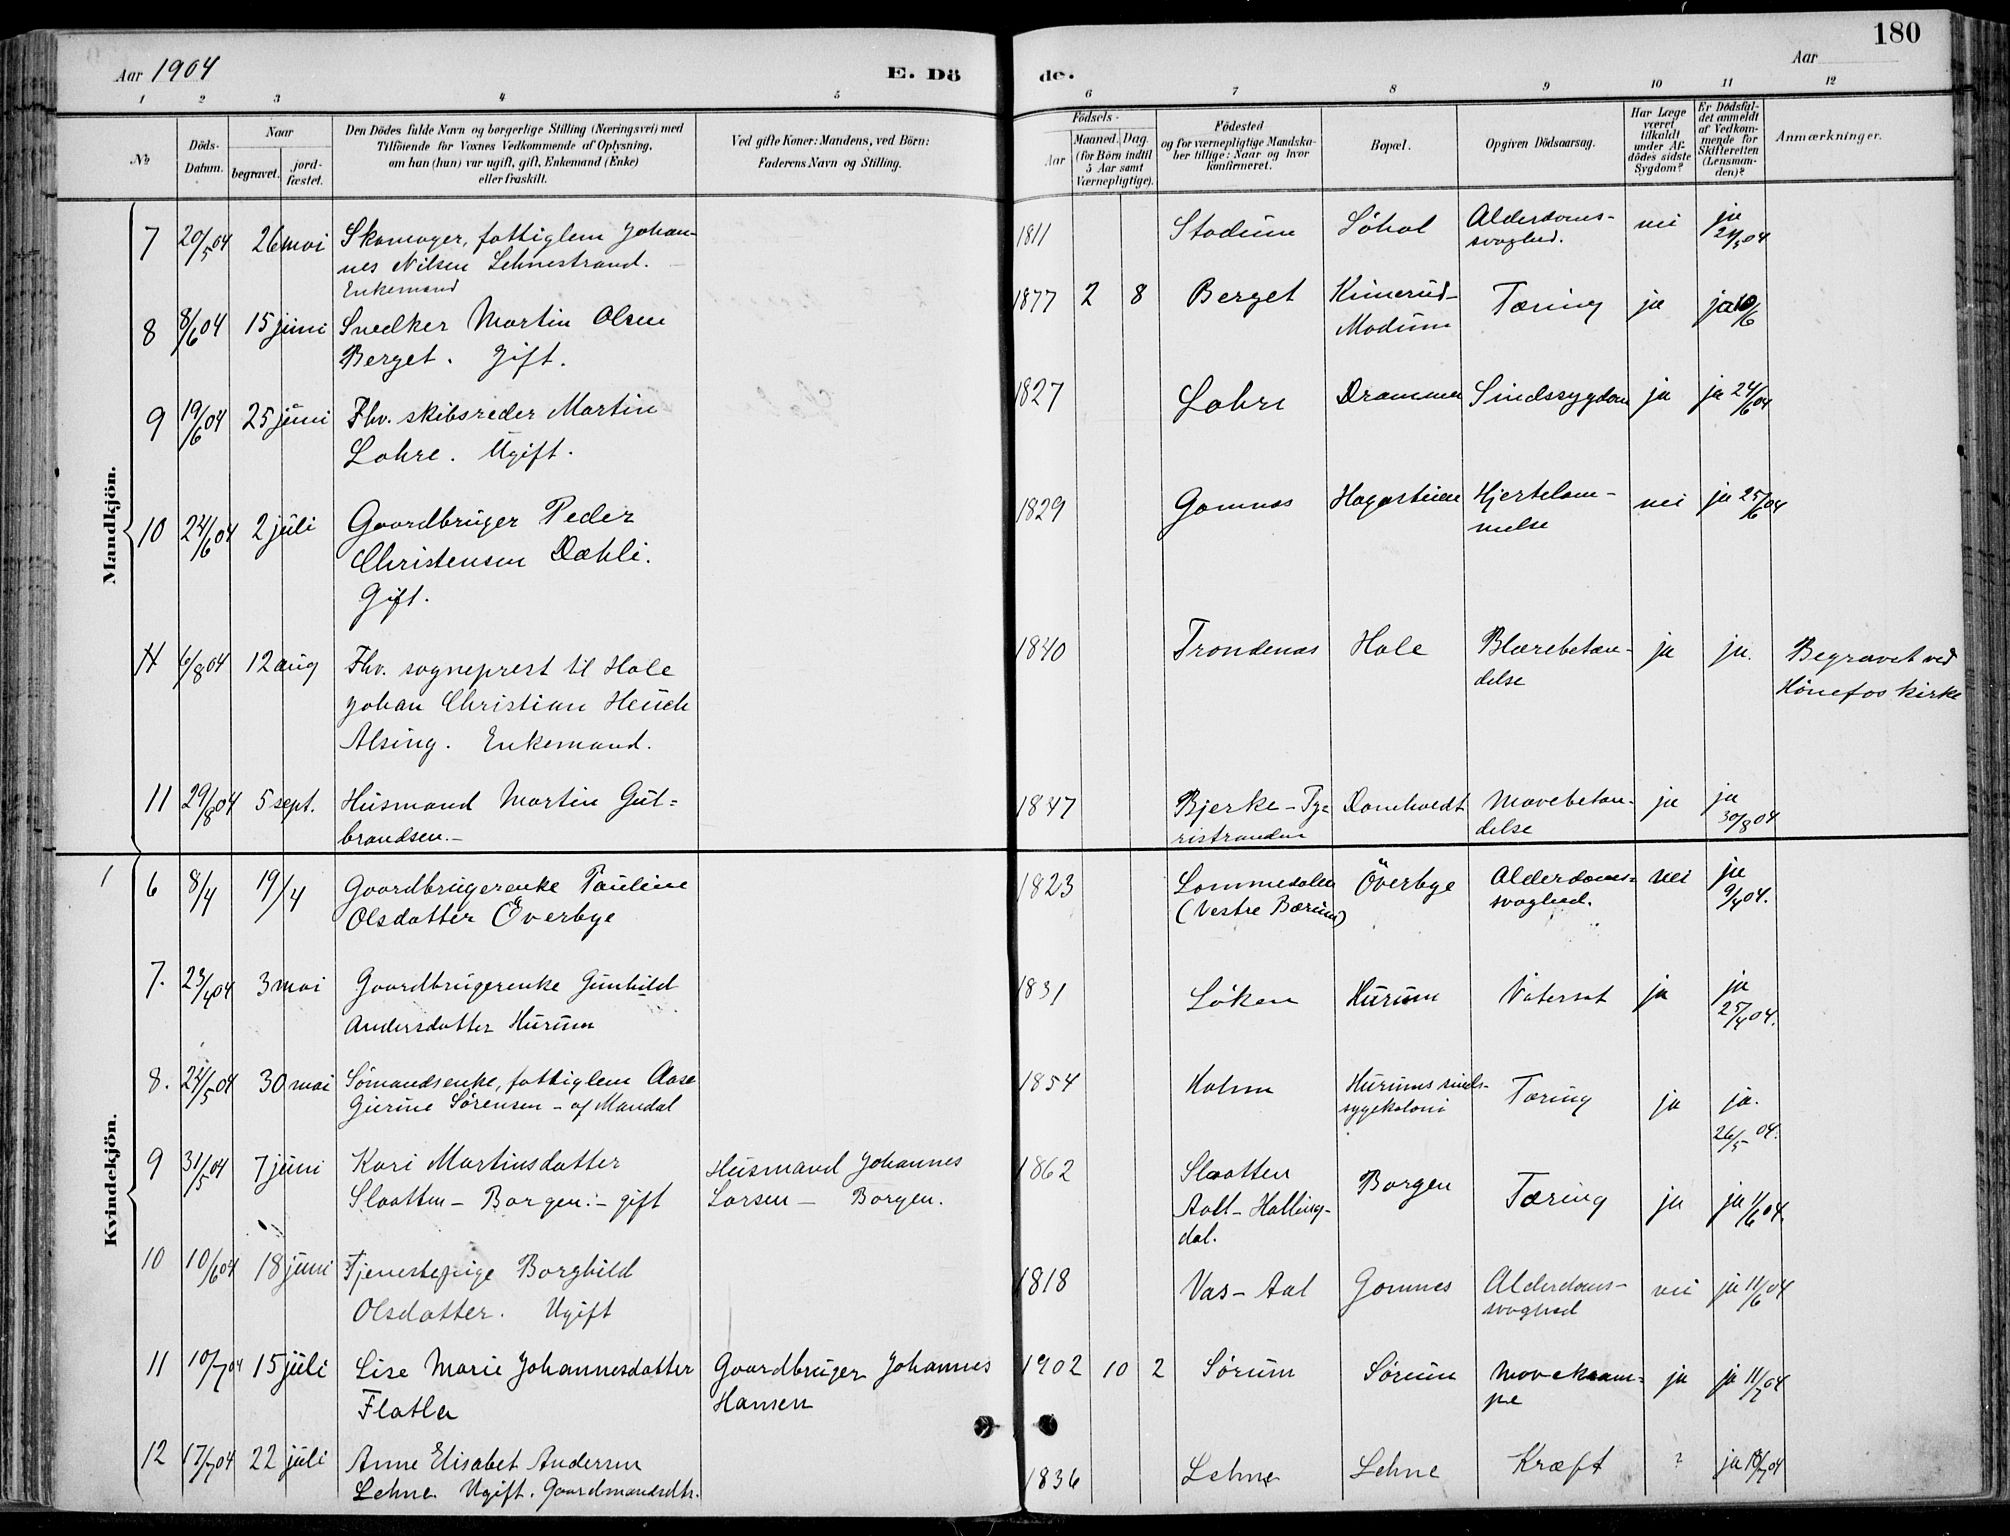 180
Aar 1904
E. Dö
de.
Aar
1 2 3 4 5 6 7 8 9 10 11 12
No
Döds-
Datum.
Naar
begravet.
jord-
fæstet.
Den Dödes fulde Navn og borgerlige Stilling (Næringsvei) med
Tilföiende for Voxnes Vedkommende af Oplysning,
om han (hun) var ugift, gift, Enkemand (Enke)
eller fraskilt.
Ved gifte Koner: Mandens, ved Börn:
Faderens Navn og Stilling.
Födsels-
Aar
Maaned. Dag.
(for Börn indtil
5 Aar samt
Værnepligtige).
Födested
og for værnepligtige Mandska-
ber tillige: Naar og hvor
konfirmeret.
Bopæl.
Opgiven Dödsaarsag.
Har Læge
været
tilkaldt
under Af-
dödes sidste
Sygdom?
Er Dödsfal-
det anmeldt
af Vedkom-
mende for
Skifteretten
(Lensman-
den)?
Anmærkninger.
Mandkjön.
7 20/5 04 26 mai Skomager, fattiglem Johan- 1811 Stadum Söhol Alderdoms- nei ja
nes Nilsen Lehnestrand. svaghed. 21/5 04
Enkemand
8 8/6 04 15 juni Snedker Martin Olsen 1877 2 8 Berget Kimerud- Tæring ja ja 10/6
Berget. Gift. Modum
9 19/6 04 25 juni Fhv. skibsreder Martin 1827 Lohre Drammen Sindssygdom ja ja 24/6 04
Lohre. Ugift.
10 24/6 04 2 juli Gaardbruger Peder 1829 Gomnæs Hagasteien Hjertelam- nei ja 25/6 04
Christensen Dæhli. melse
Gift.
6/8 04 12 aug Fhv. sogneprest til Hole 1840 Trondenæs Hole Blærebetæn- ja ja. Begravet ved
Johan Christian Heuch delse Hönefos kirke
Alsing. Enkemand.
11 29/8 04 5 sept. Husmand Martin Gut- 1847 Bjerke - Ty- Domholdt Mavebetæn- ja ja
brandsen. - ristranden delse 30/8 04
Kvindekjön.
6 8/4 19/4 Gaardbrugerenke Pauline 1823 Lommedalen Överbye Alderdoms- nei ja
Olsdatter Överbye (Vestre Bærum) svaghed. 9/4 04.
7. 23/4 04 3 mai Gaardbrugerenke Gunhild 1831 Löken Hurum Vatersot ja ja
Andersdatter Hurum 25/4 04.
8. 24/5 04 30 mai Sömandsenke, fattiglem Aase 1854 Holum Hurums sinds- Tæring ja ja.
Gurine Sörensen - af Mandal sygekoloni 26/5 04.
9 31/5 04 7 juni Kari Martinsdatter Husmand Johannes 1862 Slaatten Borgen Tæring ja ja 1/6 04.
Slaatten - Borgen. - gift Larsen - Borgen. Aal - Halling-
dal.
10 10/6 04 18 juni Tjenestepige Borghild 1818 Vas - Aal Gomnes Alderdoms- nei ja 11/6 04
Olsdatter. Ugift svaghed
11 10/7 04 15 juli Lise Marie Johannesdatter Gaardbruger Johannes 1902 10 2 Sörum Sörum Mavekram- ja ja 11/7 04
Flatla Hansen pe
12 17/7 04 22 juli Anne Elisabet Andersen 1836 Lehne Lehne Kræft ? ja 18/7 04
Lehne. Ugift. Gaardmandsdtr.